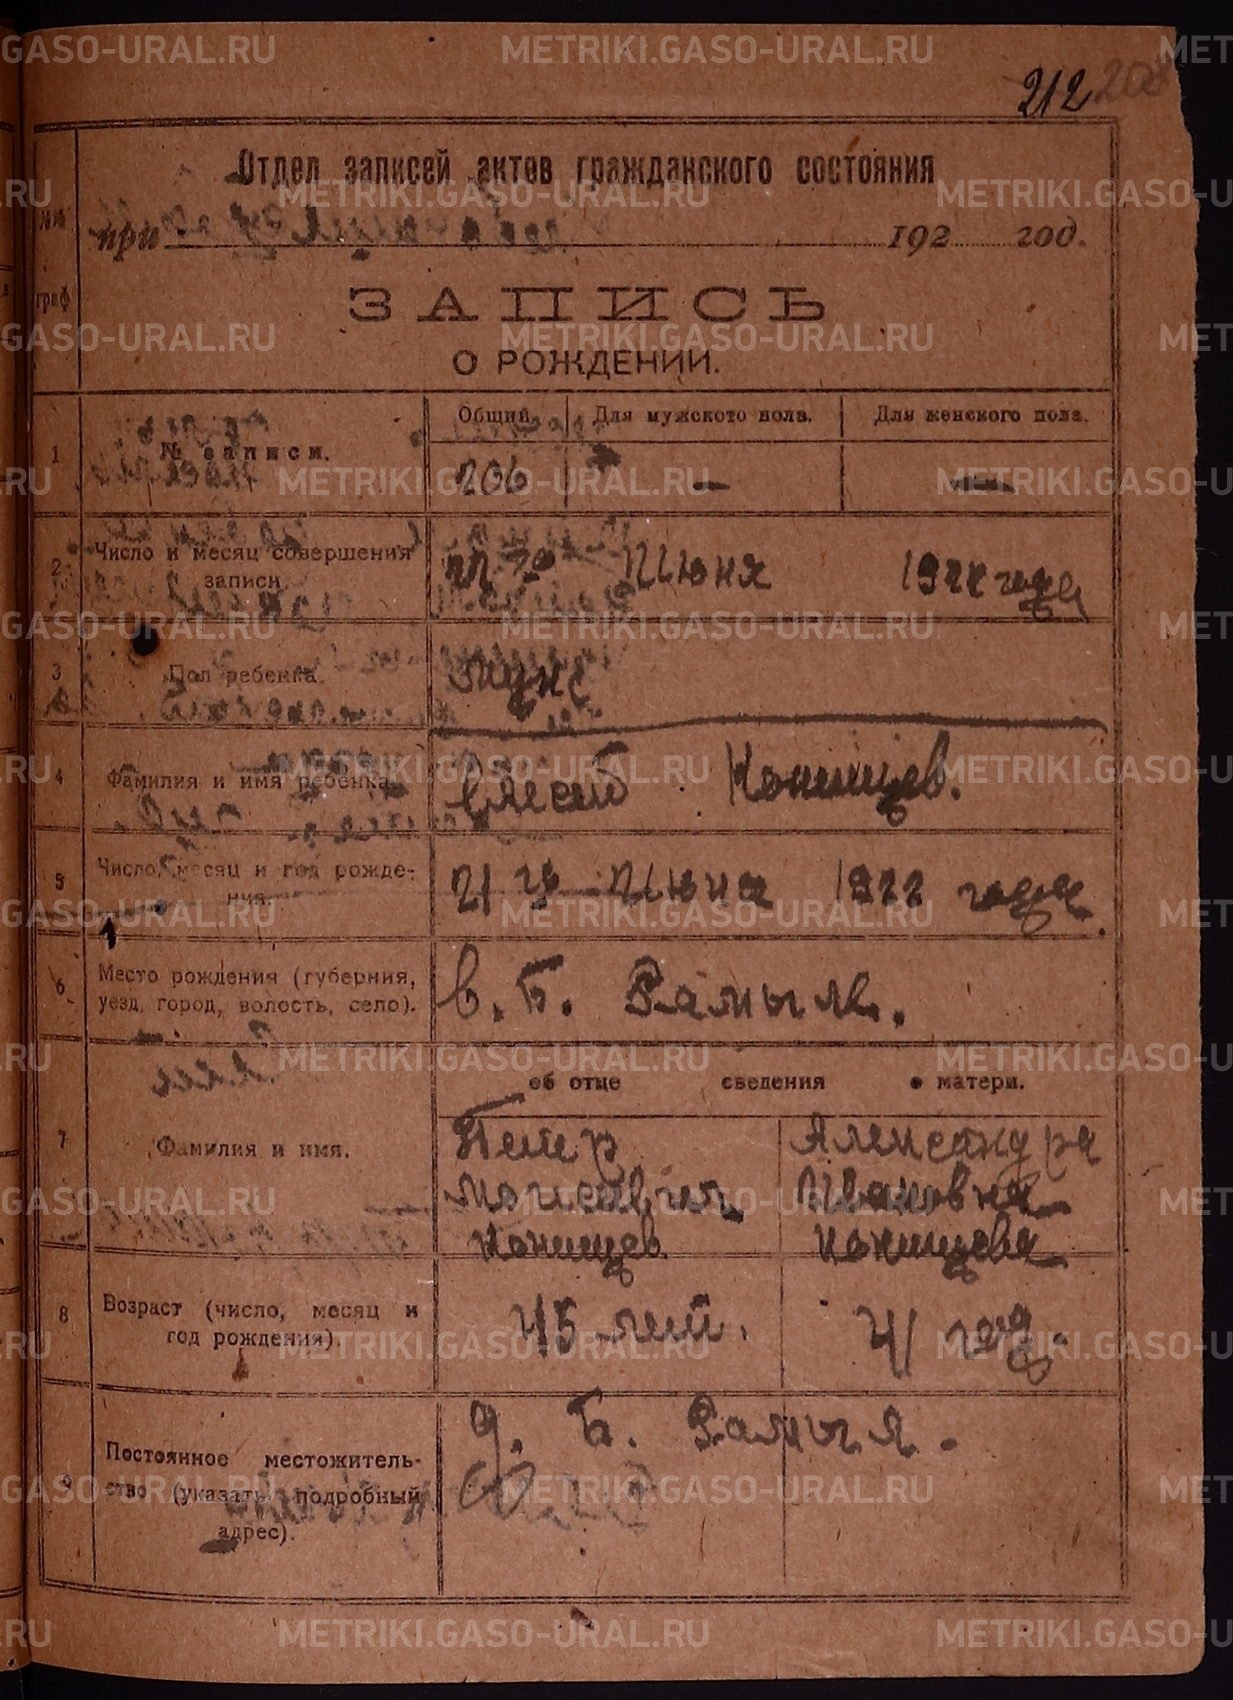 212 208
Отдел записей актов гражданского состояния
при 192 год.
№№ граф
ЗАПИСЬ
О РОЖДЕНИИ.
Общий. Для мужского пола. Для женского пола.
1 № записи. 206 — —
2 Число и месяц совершения Июня 1922 года
записи.
3 Пол ребенка. мужс
4 Фамилия и имя ребенка. Конищев.
5 Число, месяц и год рожде- 21 го Июня 1922 года.
ния.
6 Место рождения (губерния, в. Б. Рамыле.
уезд, город, волость, село).
об отце сведения о матери.
7 Фамилия и имя. Петр Александра
Ивановна
Конищев Конищева
8 Возраст (число, месяц и 45 лет. 41 год.
год рождения).
9 Постоянное местожитель- д. Б. Рамыл.
ство (указать подробный
адрес).
METRIKI.GASO-URAL.RU